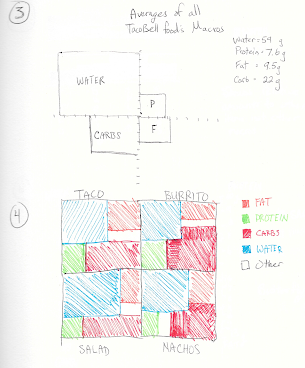 3
Averages of all
TacoBell food's Macros
Water = 59 g
Protein = 7.6 g
Fat = 9.5 g
Carb = 22 g
WATER
P
CARBS
F
4
TACO
BURRITO
FAT
PROTEIN
CARBS
WATER
Other
SALAD
NACHOS